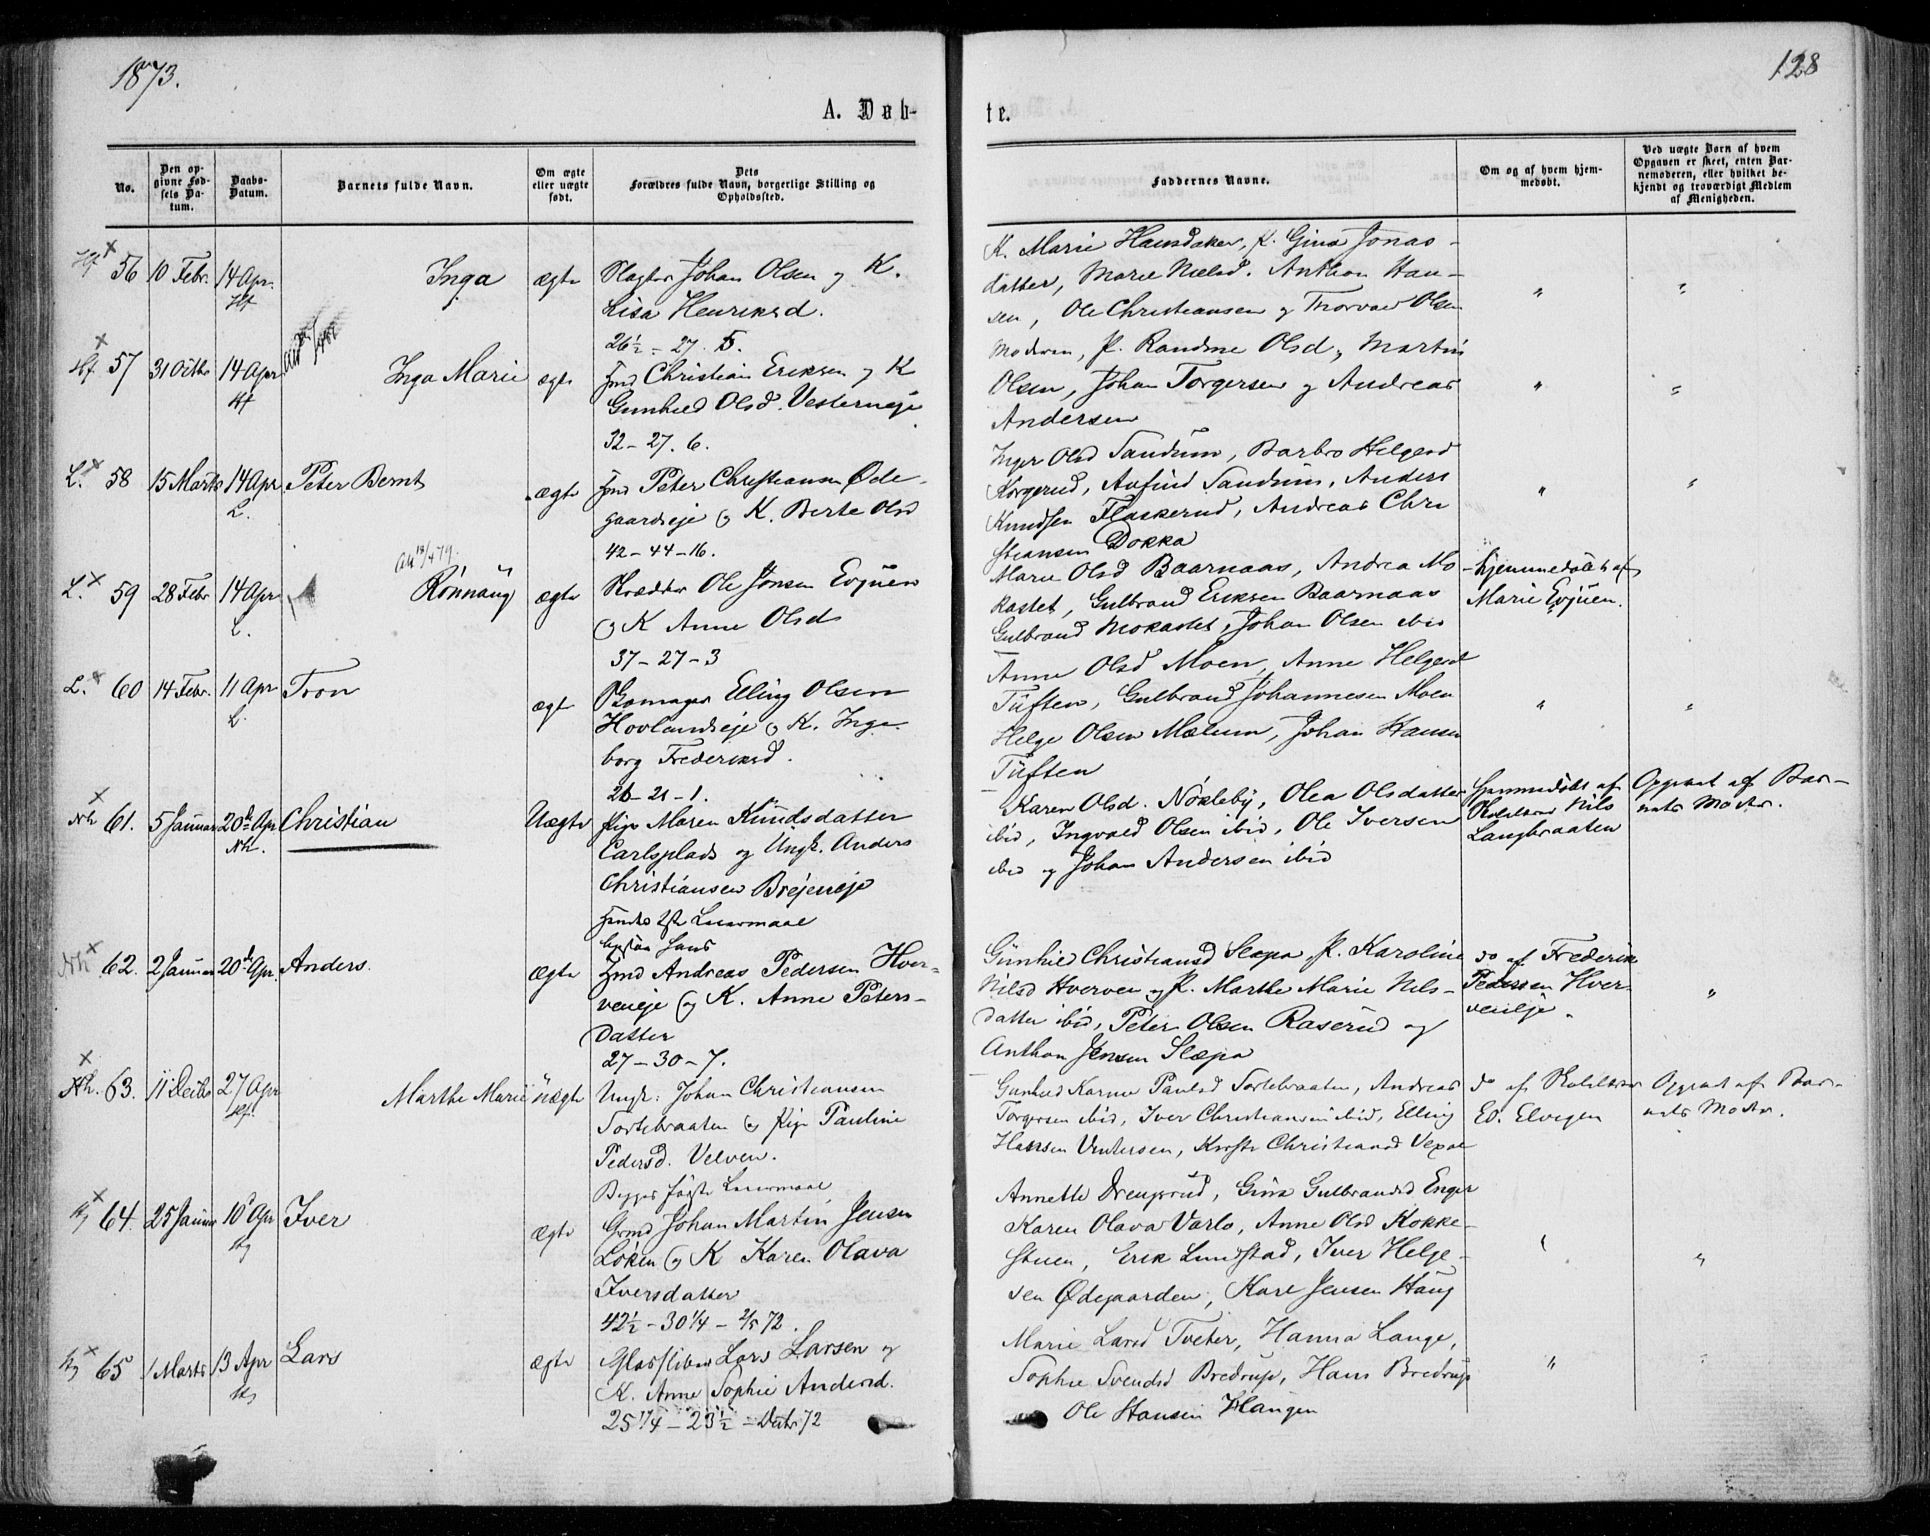 1873.
128
A. Døb-
te.
No.
Den op-
givne Fød-
sels Da-
tum.
Daabs-
Datum.
Barnets fulde Navn.
Om ægte
eller uægte
født.
Dets
Forældres fulde Navn, borgerlige Stilling og
Opholdssted.
Faddernes Navne.
Om og af hvem hjem-
medøbt.
Ved uægte Børn af hvem
Opgaven er skeet, enten Bar-
nemoderen, eller hvilket be-
kjendt og troværdigt Medlem
af Menigheden.
56 10 Febr. 14 Apr. Inga ægte Slagter Johan Olsen og K.
Lisa Henriksd.
26½ - 27. 5.
K. Marie Hansdaker, P. Gina Jonas-
datter, Marie Nielsd. Anthon Han-
sen, Ole Christiansen og Thorvald Olsen
57 31 Octbr 14 Apr Inga Marie ægte Hmd Christian Eriksen og K
Gunhild Olsd. Vesterneje
32 - 27. 6.
Moderen, P. Randine Olsd, Martin
Olsen, Johan Torgersen og Andreas
Andersen
L. 58 15 Marts 14 Apr Peter Bernt ægte Hmd Peter Christiansen Øde-
L.
gaardseje og K. Berte Olsd
42 - 44 - 16.
Inger Olsd Sandum, Barbro Helgesd
Korgerud, Anfind Sandum, Anders
Knudsen Flaskerud, Andreas Chri
stiansen Dokka
L. 59 28 Febr 14 Apr Rønnaug ægte Skrædder Ole Jonsen Evjuen
L.
og K Anne Olsd
37 - 27 - 3
Marie Olsd Baarnaas, Andrea Mo-
kastet, Gulbrand Eriksen Baarnaas
Gulbrand Mokastet, Johan Olsen ibid
hjemmedøbt af
Marie Evjuen.
L. 60 14 Febr. 11 Apr Tron ægte Elling Olsen
L.
Hovlandseje og K. Inge
borg Frederiksd.
26 - 21 - 1.
Anne Olsd Moen, Anne Helgesd
Tuften, Gulbrand Johannesen Moen
Helge Olsen Mælum, Johan Hansen
Tuften
Nh 61. 5 Januar 20de Apr Christian Uægte Pige Maren Knudsdatter
Nh.
Carlsplads og Ungk. Anders
Christiansen Brejeneje
Hendes 2det Leiermaal
hans
Karen Olsd. Nøkleby, Olea Olsdatter
ibid, Ingvald Olsen ibid, Ole Iversen
ibid og Johan Andersen ibid
Hjemmedøbt af
Nils
Langbraaten
Opgivet af Bar-
nets Moder.
Nh 62. 2 Januar 20de Apr. Anders. ægte Hmd Andreas Pedersen Hver-
veneje og K. Anne Peters-
datter
27 - 30 - 7.
Gunhild Christiansd Slæpa, P. Karoline
Nilsd Hverven og P. Marthe Marie Nils-
datter ibid, Peter Olsen Raserud og
Anthon Jensen Slæpa
do af Frederik
Pedersen Hver-
veneje.
Nh. 63. 11 Decbr 27 Apr Marthe Marie uægte Ungk: Johan Christiansen
Sortebraaten og Pige Pauline
Pedersd. Velven.
Begges første Leiermaal
Gunhild Karine Paulsd Sortebraaten, Andreas
Torgersen ibid, Iver Christiansen ibid, Elling
Hansen Ventersen, Kirsti Christiansd Vexal
do af Skolelærer
Ed. Elvigen
Opgivet af Bar-
nets Moder.
64. 25 Januar 10 Apr Iver ægte Grmd Johan Martin Jensen
Løken og K Karen Olava
Iversdatter
42½ - 30¼ - 2/5 72.
Annette Drengsrud, Gina Gulbrandsd Enger
Karen Olava Varlo, Anne Olsd Kokke-
stuen, Erik Lundstad, Iver Helge-
sen Ødegaarden, Karl Jensen Haug
65 1 Marts 13 Apr Lars ægte Glassliber Lars Larsen og
K. Anne Sophie Andersd.
25¼ - 23½ - Decbr 72
Marie Larsd Tveter, Hanna Lange,
Sophie Svendsd Bredrup, Hans Bredrup
Ole Hansen Haugen